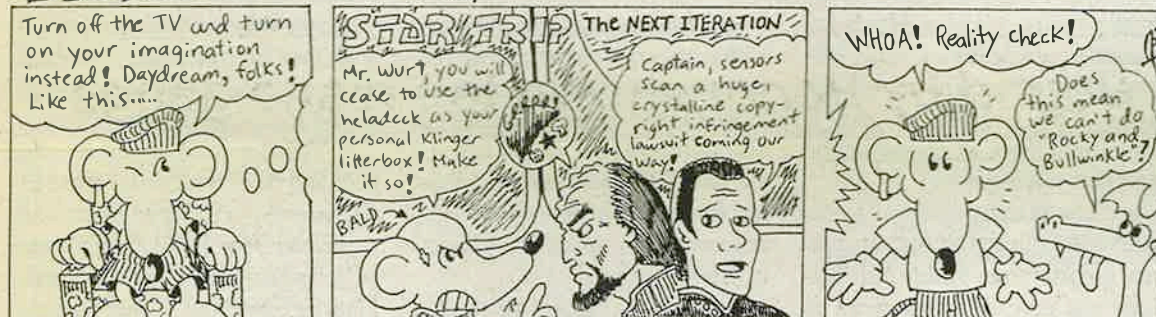 Turn off the TV and turn
on your imagination
instead! Daydream, folks!
Like this.....
STAR TRIP
The NEXT ITERATION
Mr. Wurf, you will
cease to use the
heladeck as your
personal Klinger
litterbox! Make
it so!
BALD
Captain, sensors
scan a huge,
crystalline copy-
right infringement
lawsuit coming our
way!
WHOA! Reality check!
Does
this mean
we can't do
"Rocky and
Bullwinkle"?